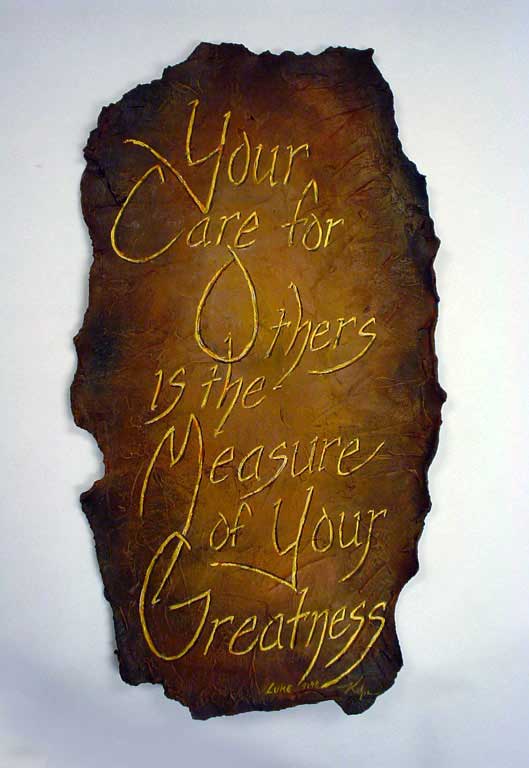 Your
Care for
Others
is the
Measure
of Your
Greatness
LUKE